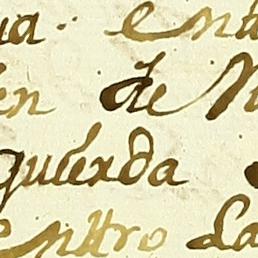 ua. ent
en de N
quierda
entro La